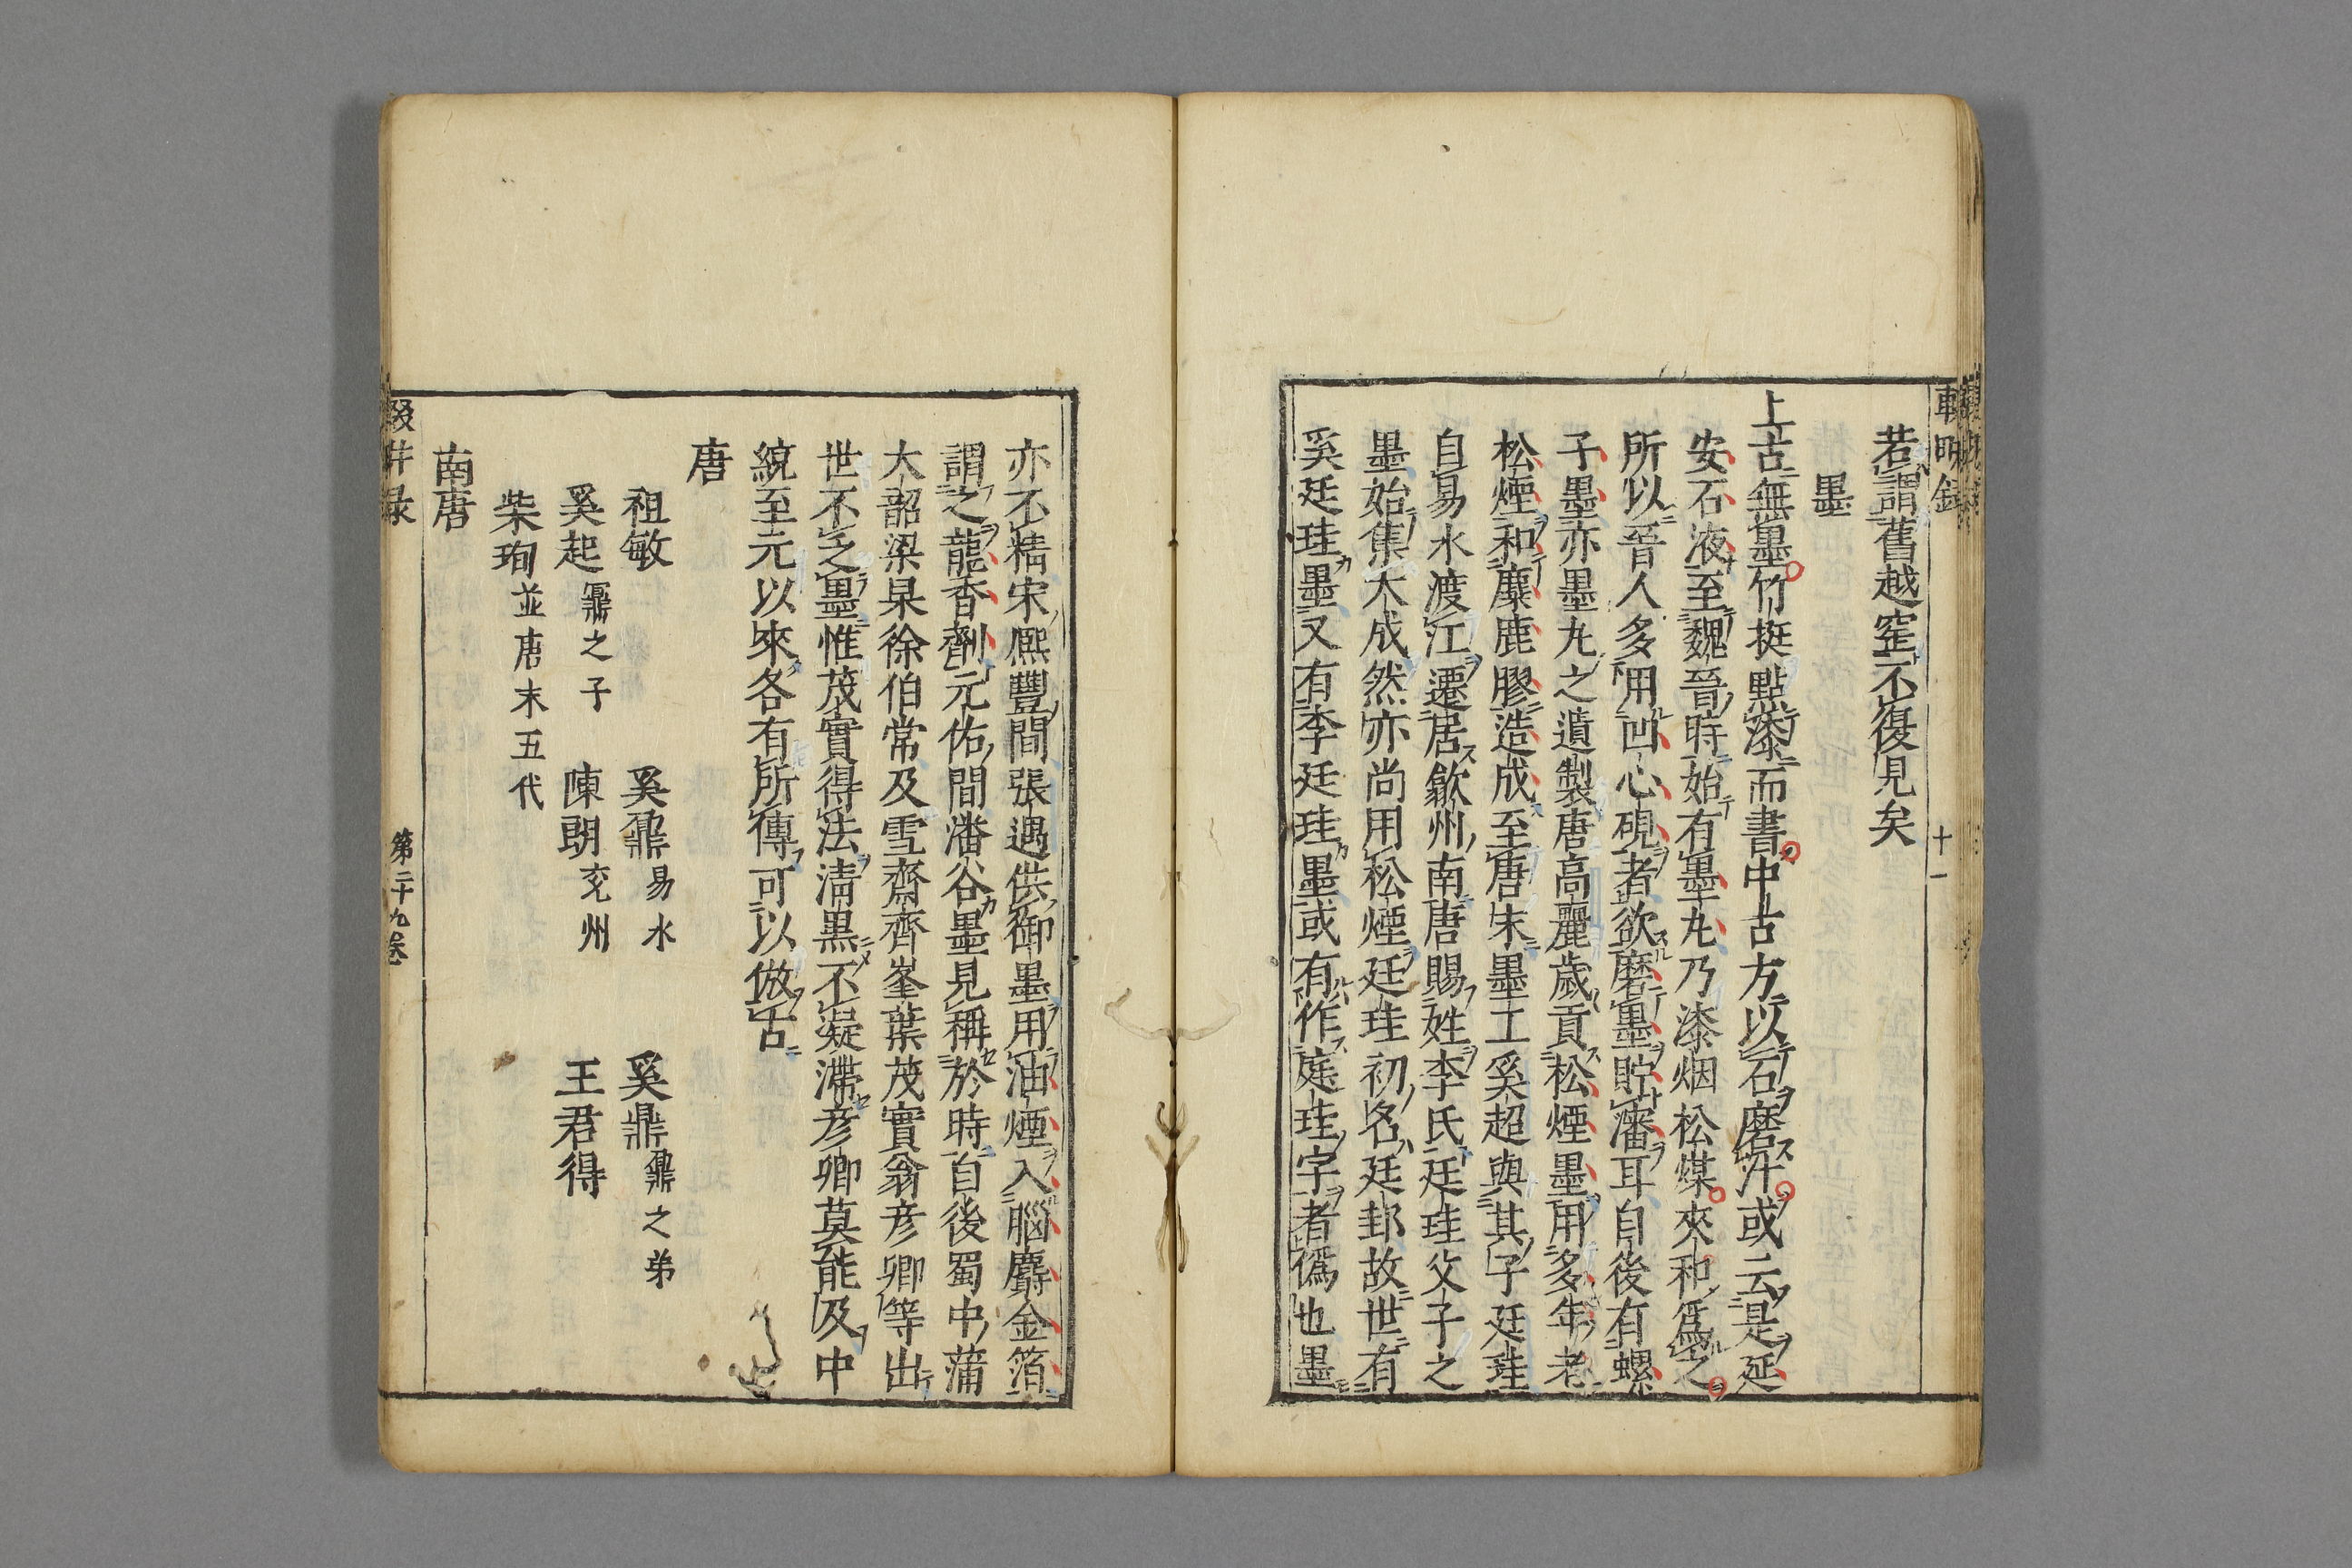 若謂舊越窑不復見矣
墨
上古無墨竹挺點漆而書中古方以石磨汁或云是延
安石液至魏晉時始有墨丸乃漆烟松煤夾和爲之
所以晉人多用凹心硯者欲磨墨貯瀋耳自後有螺
子墨亦墨丸之遺製唐高麗歲貢松煙墨用多年老
松煙和麋鹿膠造成至唐末墨工奚超與其子廷珪
自易水渡江遷居歙州南唐賜姓李氏廷珪父子之
墨始集大成然亦尚用松煙廷珪初名廷邽故世有
奚廷珪墨又有李廷珪墨或有作庭珪字者僞也墨
亦不精宋熈豐間張遇供御墨用油煙入腦麝金箔
謂之龍香劑元佑間潘谷墨見稱於時自後蜀中蒲
大韶梁杲徐伯常及雪齋齊峯葉茂實翁彦卿等出
世不乏墨惟茂實得法清黒不凝滯彦卿莫能及中
統至元以來各有所傳可以倣古
唐
祖敏 奚鼐易水 奚鼎鼐之弟
奚起鼐之子 陳朗兗州 王君得
柴珣並唐末五代
南唐
第二十九卷
十一